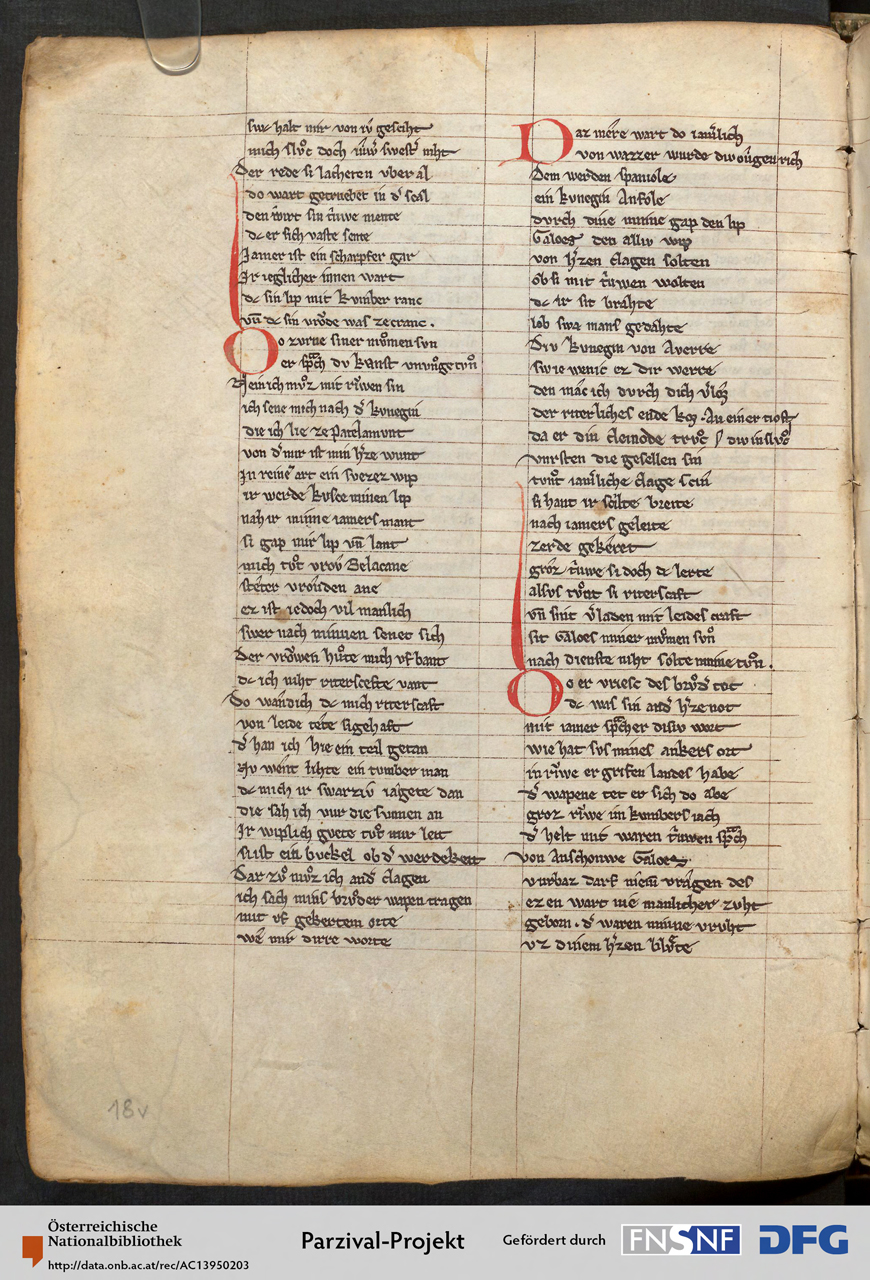 swc halt mir von iv̄ geſciht
mich ſlv̊c doch iw̄ ſweſt̄ niht
Der rede ſi lacheten vber al
do wart getruebet in d̄ ſcal
den wirt ſin t̄uwe mente
dc er ſich vaſte ſente
Jamer iſt ein ſcharpfer gar
Jr ieglicher innen wart
dc ſin lip mit kvmber ranc
vn̄ dc ſin vrv̊de was ze cranc.
Do zurne ſiner mv̊men ſvn
er ſp̄ch dv kanſt vnvv̊ge tv̊n
Nein ich mv̊z mit riwen ſin
ich ſene mich nach d̄ kvnegin
die ich lie ze Patelamunt
von d̄ mir iſt min h̄ze wunt
Jn reiner art ein ſvezez wip
ir werde kvſce minen lip
nah ir minne iamers mant
ſi gap mir lip vn̄ lant
mich tv̊t vrov̄ Belacane
ſteter vrov̊den ane
ez iſt iedoch vil manlich
ſwer nach minnen ſenet ſich
Der vrov̊wen hv̊te mich vf bant
dc ich niht riterſcefte vant
Do wandich dc mich riterſcaft
von leide tete ſigehaft
d̄ han ich hie ein teil getan
Nv went lihte ein tumber man
dc mich ir ſwarziv iagete dan
die ſah ich vur die ſvnnen an
Jr wiplich gvete tv̊t mir leit
ſi iſt ein bvckel ob d̄ werdekeit
Dar zv̊ mv̊z ich and̄ clagen
ich ſach mins brv̊der wapen tragen
mit vf gekertem orte
we mir dirre worte
Daz mere wart do iam̄lich
von wazzer wurde div ov̊gen rich
Dem werden ſpaniole
ein kvnegin Anfole
durch dine minne gap den lip
Galoes den alliv wip
von h̄zen clagen ſolten
ob ſi mit t̄uwen wolten
dc ir ſit brahte
lob ſwa mans gedahte
Div kvnegin von Averre
ſwie wenic ez dir werre
den mac ich durch dich v̄los
der riterliches ende kos An einer tioſt
da er din cleinode trv̊c div in ſlv̊c
vurſten die geſellen ſin
tv̊nt iam̄liche clage ſcin
ſi hant ir ſcilte breite
nach iamers geleite
zerde gekeret
groz t̄uwe ſi doch dc lerte
alſvs tv̊nt ſi riterſcaft
vn̄ ſint v̄laden mit leides craft
ſit Galoes miner mv̊men ſvn
nach dienſte niht ſolte minne tv̊n.
Do er vrieſc des brv̊d̄ tot
dc was ſin and̄ h̄ze not
mit iamer ſp̄cher diſiv wort
wie hat ſvs mines ankers ort
in riwe ergrifen landes habe
d̄ wapene tet er ſich do abe
groz riwe im kvmbers iach
d̄ helt mit waren t̄uwen ſp̄ch
von Anſchouwe Galoes
vurbaz darf niem̄ vragen des
ez en wart nie manlicher zuht
geborn. d̄ waren minne vruht
vz dinem h̄zen blv̊te
18v
Österreichische
Nationalbibliothek
http://data.onb.ac.at/rec/AC13950203
Parzival-Projekt
Gefördert durch
FNSNF
DFG